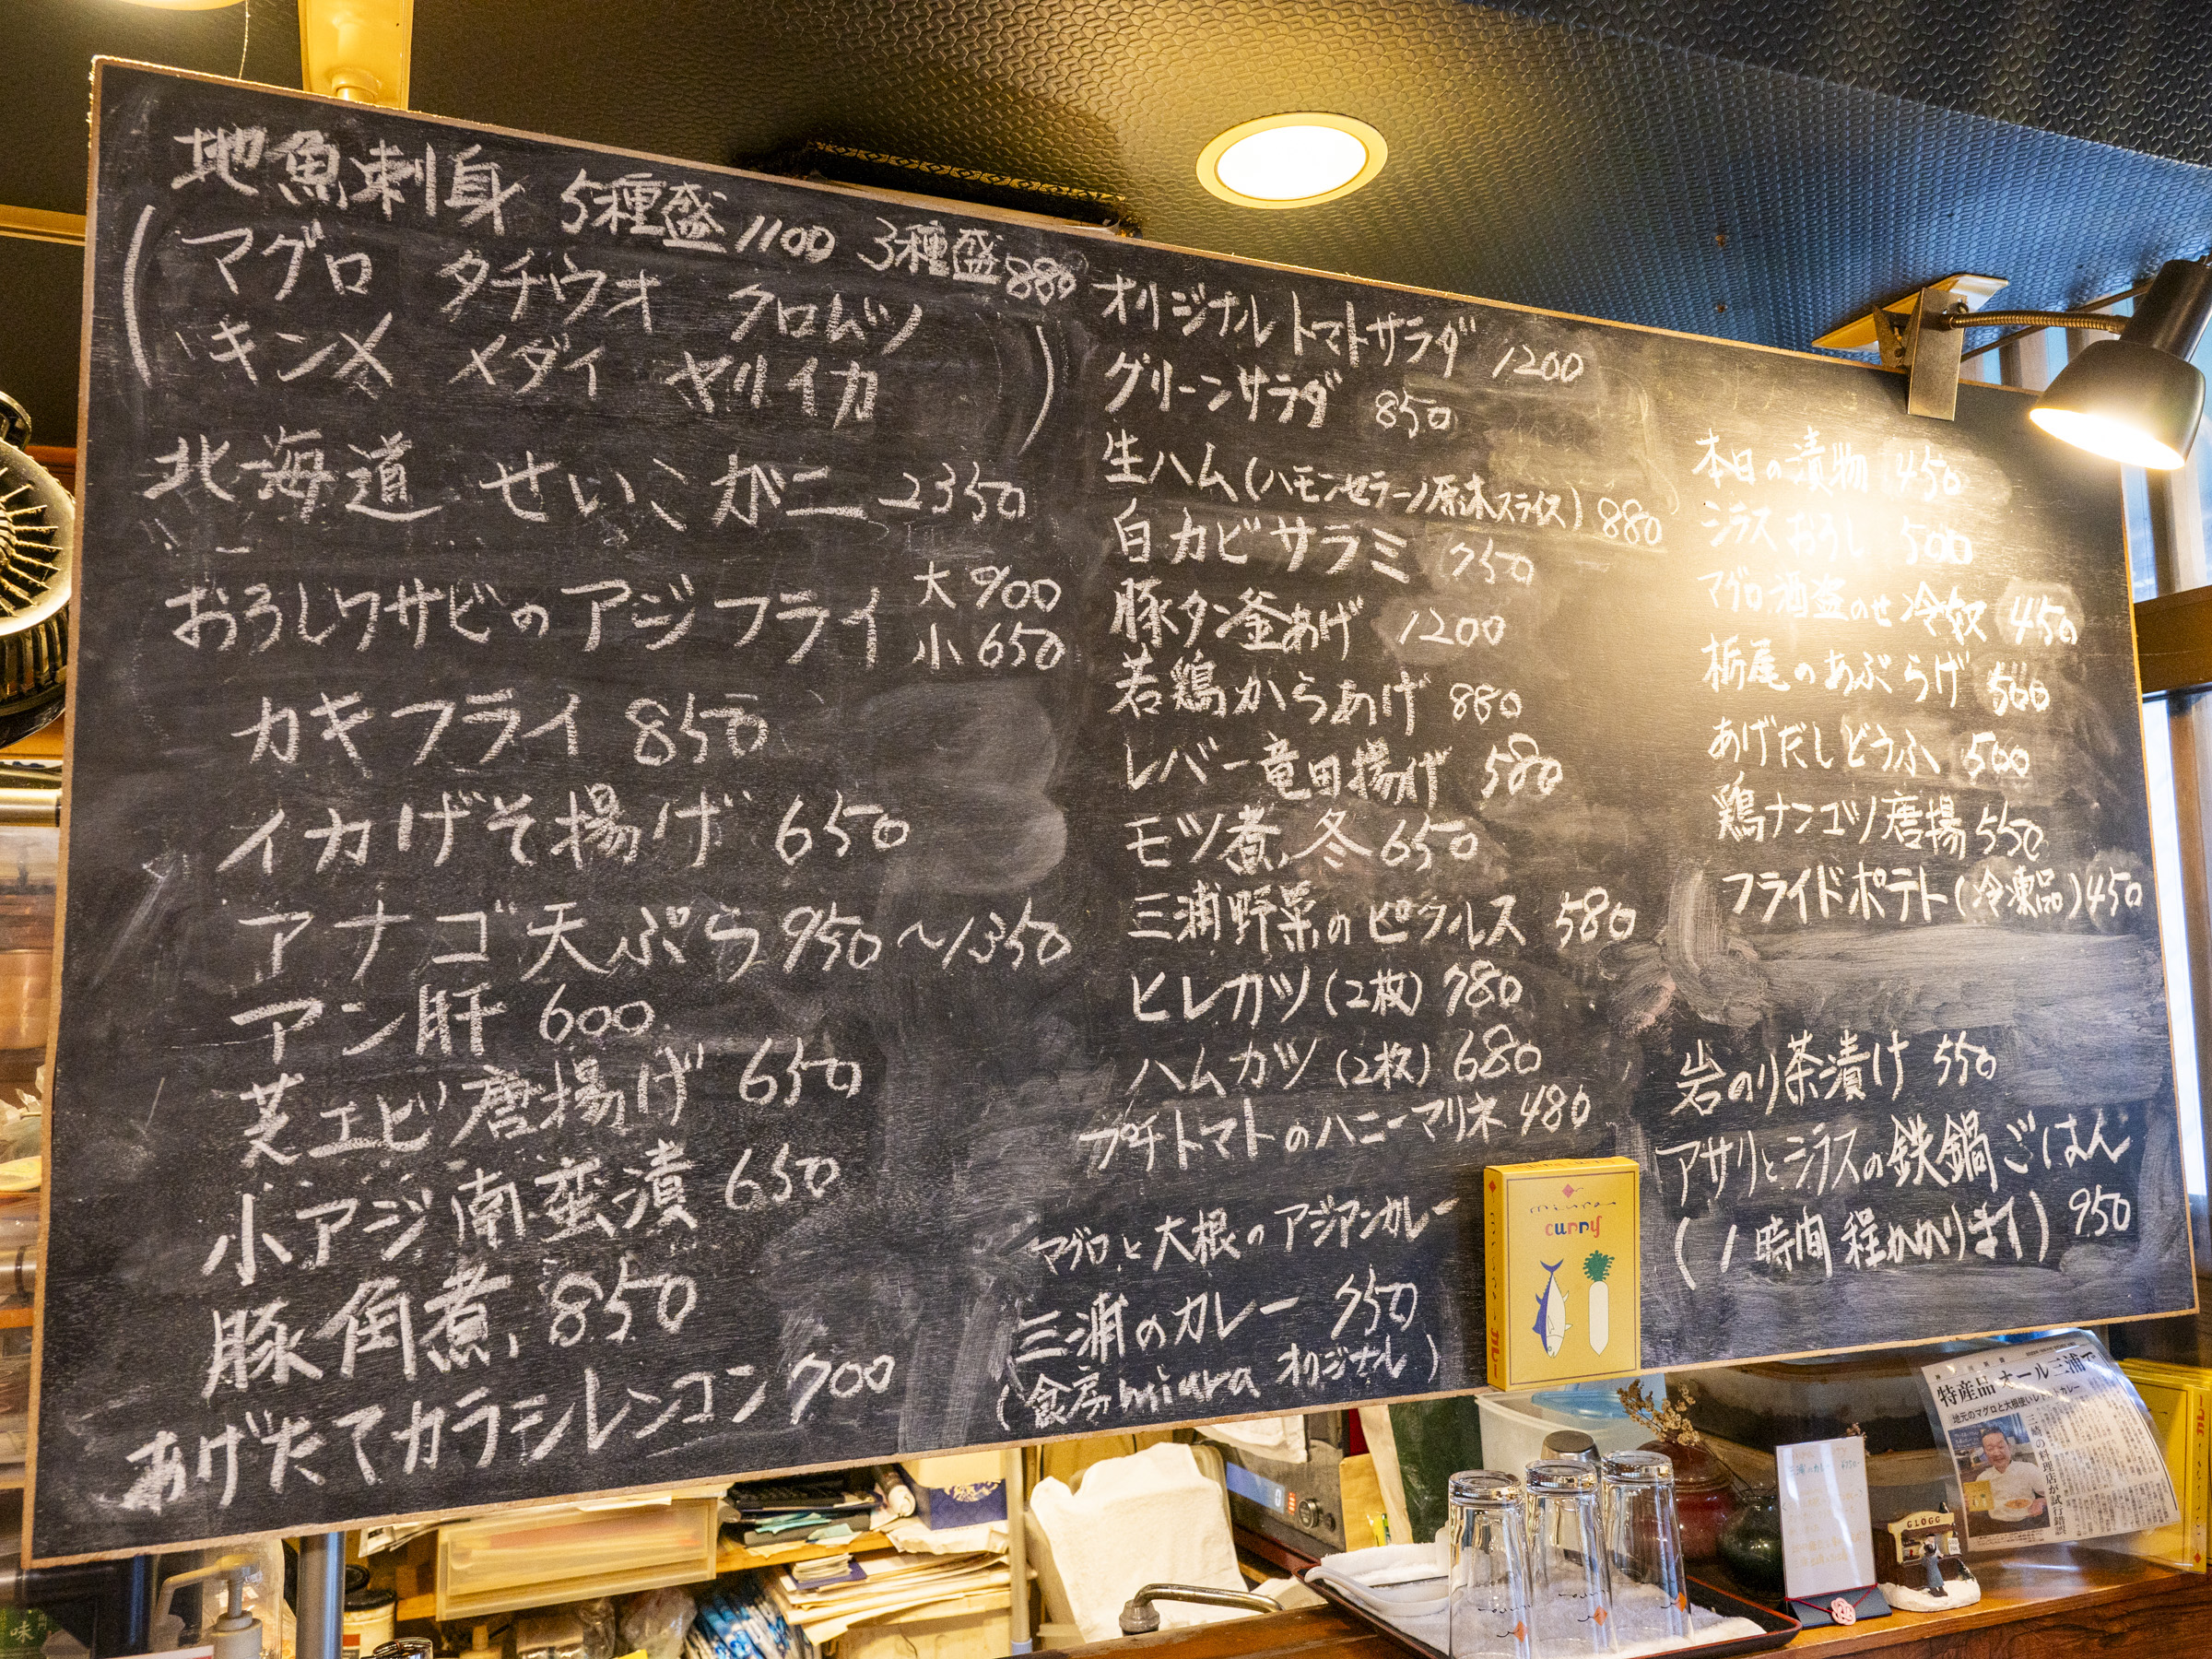 地魚刺身 5種盛1100 3種盛880
(マグロ タチウオ クロムツ
キンメ メダイ ヤリイカ)
北海道 せいこがニ 2350
おろしワサビのアジフライ 大900
小650
カキフライ 850
イカげそ揚げ 650
アナゴ天ぷら 950〜1350
アン肝 600
芝エビ唐揚げ 650
小アジ南蛮漬 650
豚角煮 850
あげたてカラシレンコン 700
オリジナルトマトサラダ 1200
グリーンサラダ 850
生ハム(ハモンセラーノ原木スライス) 880
白カビサラミ 750
豚タン釜あげ 1200
若鶏からあげ 880
レバー竜田揚げ 580
モツ煮,冬 650
三浦野菜のピクルス 580
ヒレカツ(2枚) 780
ハムカツ(2枚) 680
プチトマトのハニーマリネ 480
マグロと大根のアジアンカレー
三浦のカレー 750
(食房miuraオリジナル)
本日の漬物 450
シラスおろし 500
マグロ酒盗のせ冷奴 450
栃尾のあぶらげ 500
あげだしどうふ 500
鶏ナンコツ唐揚 550
フライドポテト(冷凍品)450
岩のり茶漬け 550
アサリとシラスの鉄鍋ごはん
(1時間程かかります) 950
miura
curry
特産品オール三浦で
地元のマグロと大根使いレトルトカレー
三崎の料理店が試行錯誤
GLÖGG
味